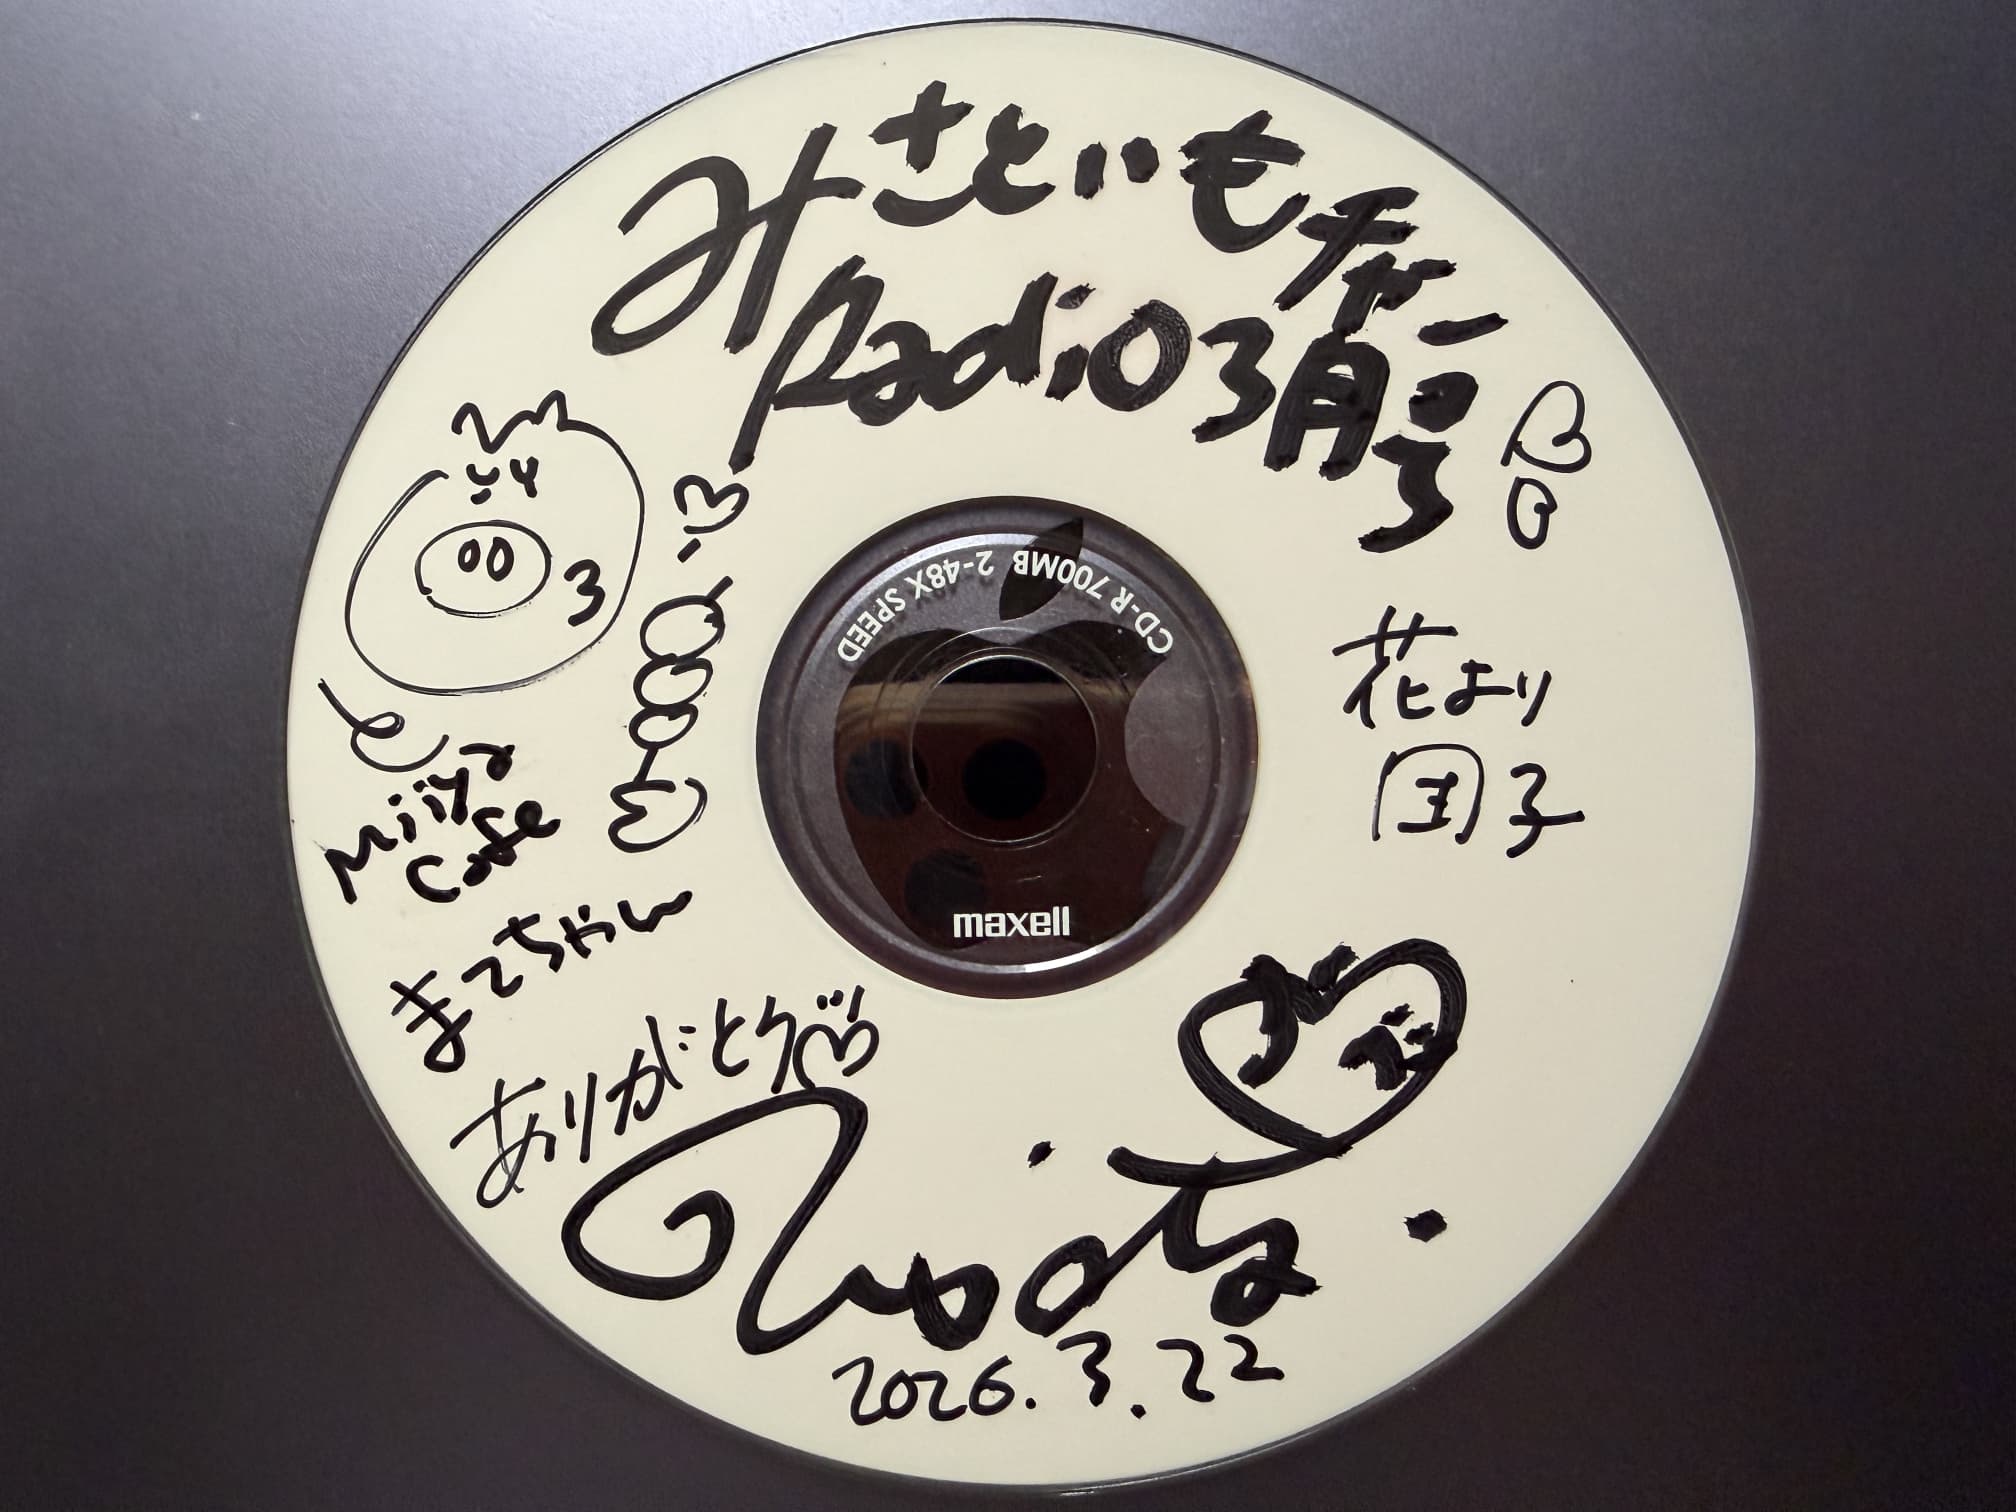 みさといもチャー
Radio 3月号
花より
団子
CD-R 700MB 2-48X SPEED
maxell
Miiya
Cafe
まこちゃん
ありがとう
2026.3.22